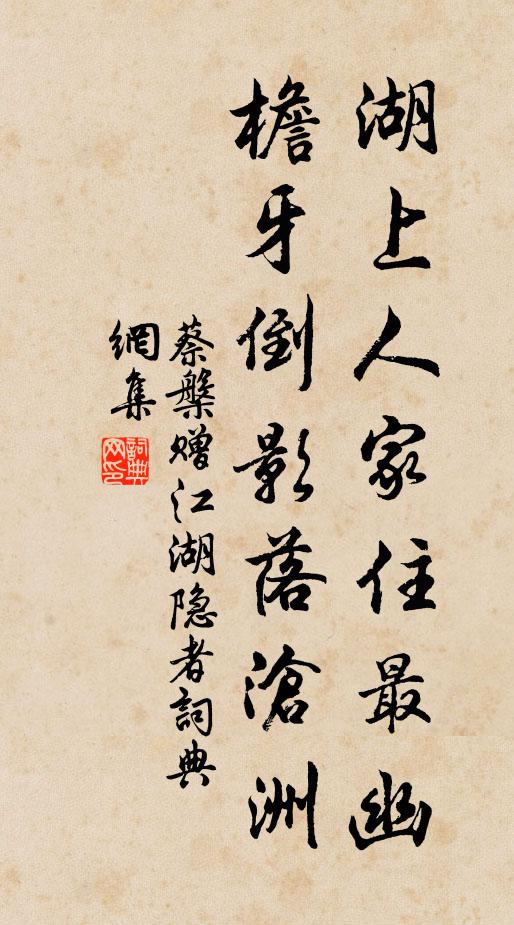 湖上人家住最幽
檐牙倒影落滄洲
蔡槃赠江湖隐者詞典
網集
詞典
网印